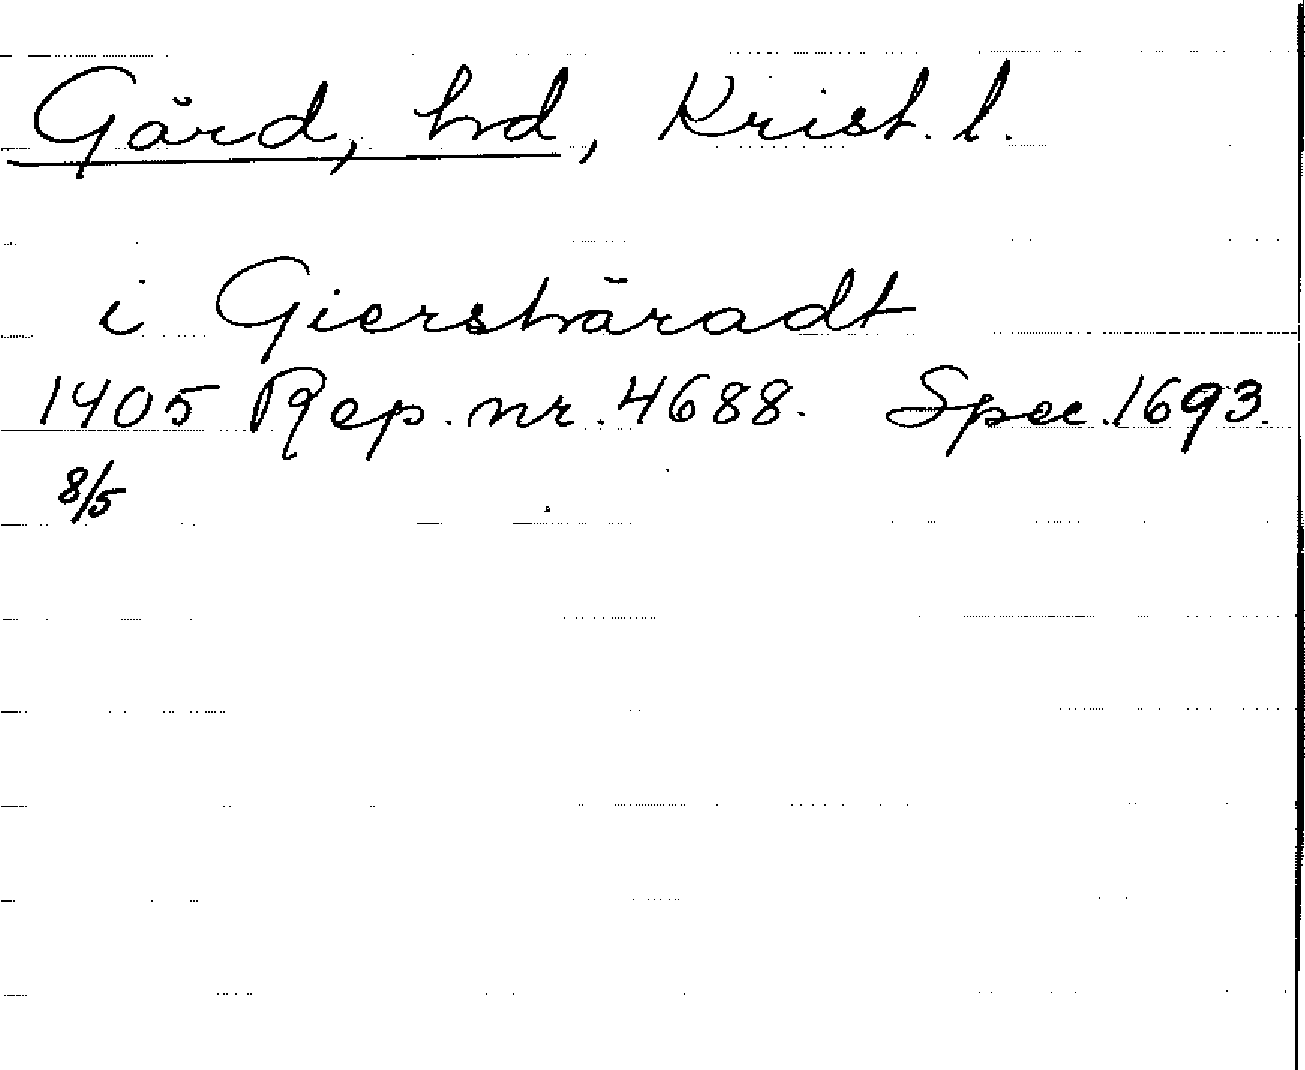 Gärd, hd, Krist. l.
i Giershäradt
1405 Rep. nr. 4688. Spec. 1693.
8/5